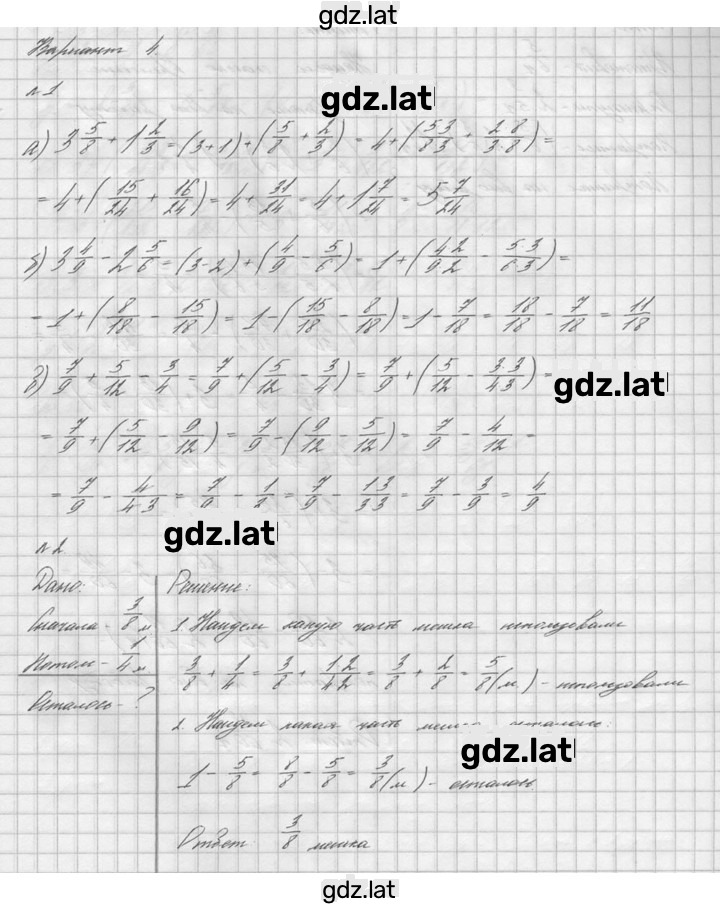 gdz.lat
Вариант 4.
№1
gdz.lat
а) 3 5/8 + 1 2/3 = (3+1)+(5/8 + 2/3) = 4+(5·3/8·3 + 2·8/3·8) =
= 4+(15/24 + 16/24) = 4+ 31/24 = 4+1 7/24 = 5 7/24
б) 3 4/9 - 2 5/6 = (3-2)+(4/9 - 5/6) = 1+(4·2/9·2 - 5·3/6·3) =
= 1+(8/18 - 15/18) = 1-(15/18 - 8/18) = 1- 7/18 = 18/18 - 7/18 = 11/18
в) 7/9 + 5/12 - 3/4 = 7/9 +(5/12 - 3/4) = 7/9 +(5/12 - 3·3/4·3) =
gdz.lat
= 7/9 +(5/12 - 9/12) = 7/9 -(9/12 - 5/12) = 7/9 - 4/12 =
= 7/9 - 4/4·3 = 7/9 - 1/3 = 7/9 - 1·3/3·3 = 7/9 - 3/9 = 4/9
gdz.lat
№2
Дано:
Сначала - 3/8 м
Потом - 1/4 м
Осталось - ?
Решение:
1. Найдем какую часть мешка использовали
3/8 + 1/4 = 3/8 + 1·2/4·2 = 3/8 + 2/8 = 5/8 (м) - использовали
2. Найдем какая часть мешка осталась:
gdz.lat
1 - 5/8 = 8/8 - 5/8 = 3/8 (м) - осталось
Ответ 3/8 мешка
gdz.lat